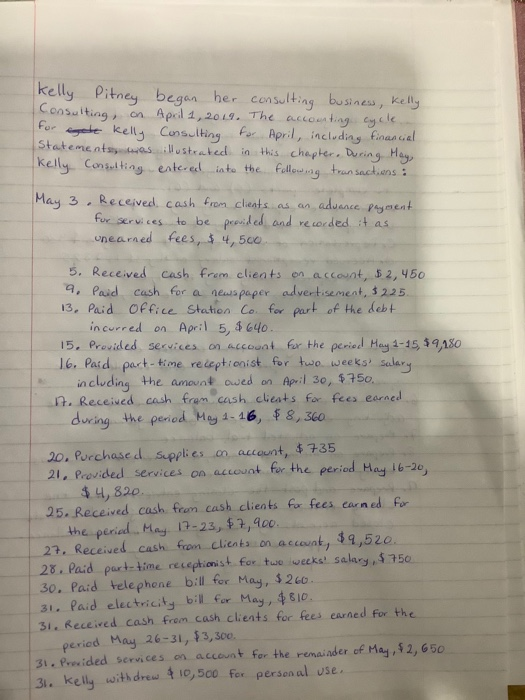 Kelly Pitney began her consulting business, Kelly
Consulting, on April 1, 2019. The accounting cycle
for cycle Kelly Consulting for April, including financial
Statements, was illustrated in this chapter. During May,
Kelly Consulting entered into the following transactions:
May 3. Received cash from clients as an advance payment
for services to be provided and recorded it as
unearned fees, $4,500
5. Received cash from clients on account, $2,450
9. Paid cash for a newspaper advertisement, $225
13. Paid Office Station Co. for part of the debt
incurred on April 5, $640.
15. Provided services on account for the period May 1-15, $9,180
16. Paid part-time receptionist for two weeks' salary
including the amount owed on April 30, $750.
17. Received cash from cash clients for fees earned
during the period May 1-16, $8,360
20. Purchased supplies on account, $735
21. Provided services on account for the period May 16-20,
$4,820.
25. Received cash from cash clients for fees earned for
the period May 17-23, $7,900.
27. Received cash from clients on account, $9,520.
28. Paid part-time receptionist for two weeks' salary, $750
30. Paid telephone bill for May, $260.
31. Paid electricity bill for May, $810.
31. Received cash from cash clients for fees earned for the
period May 26-31, $3,300.
31. Provided services on account for the remainder of May, $2,650
31. Kelly withdrew $10,500 for personal use.